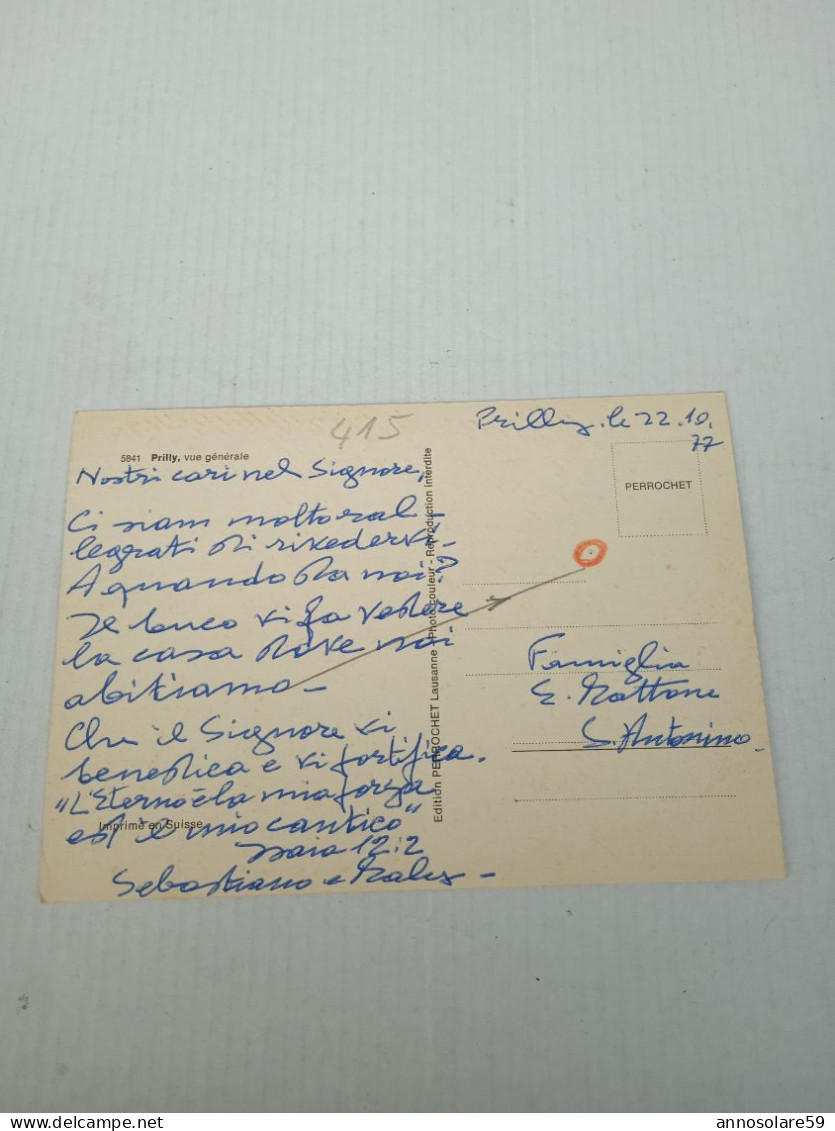 415
5841 Prilly, vue générale
Nostri cari nel Signore,
Ci siam molto ral-
legrati di rivedervi.
A quando da noi?
Il buco vi fa vedere
la casa dove noi
abitiamo-
Che il Signore vi
benedica e vi fortifica.
"L'Eterno è la mia forza
ed il mio cantico"
Isaia 12:2
Sebastiano e
Imprimé en Suisse
Edition PERROCHET Lausanne - Photo couleur - Reproduction interdite
Prilly. le 22.10.
77
PERROCHET
Famiglia
S. Antonino
delcampe.net
annosolare59